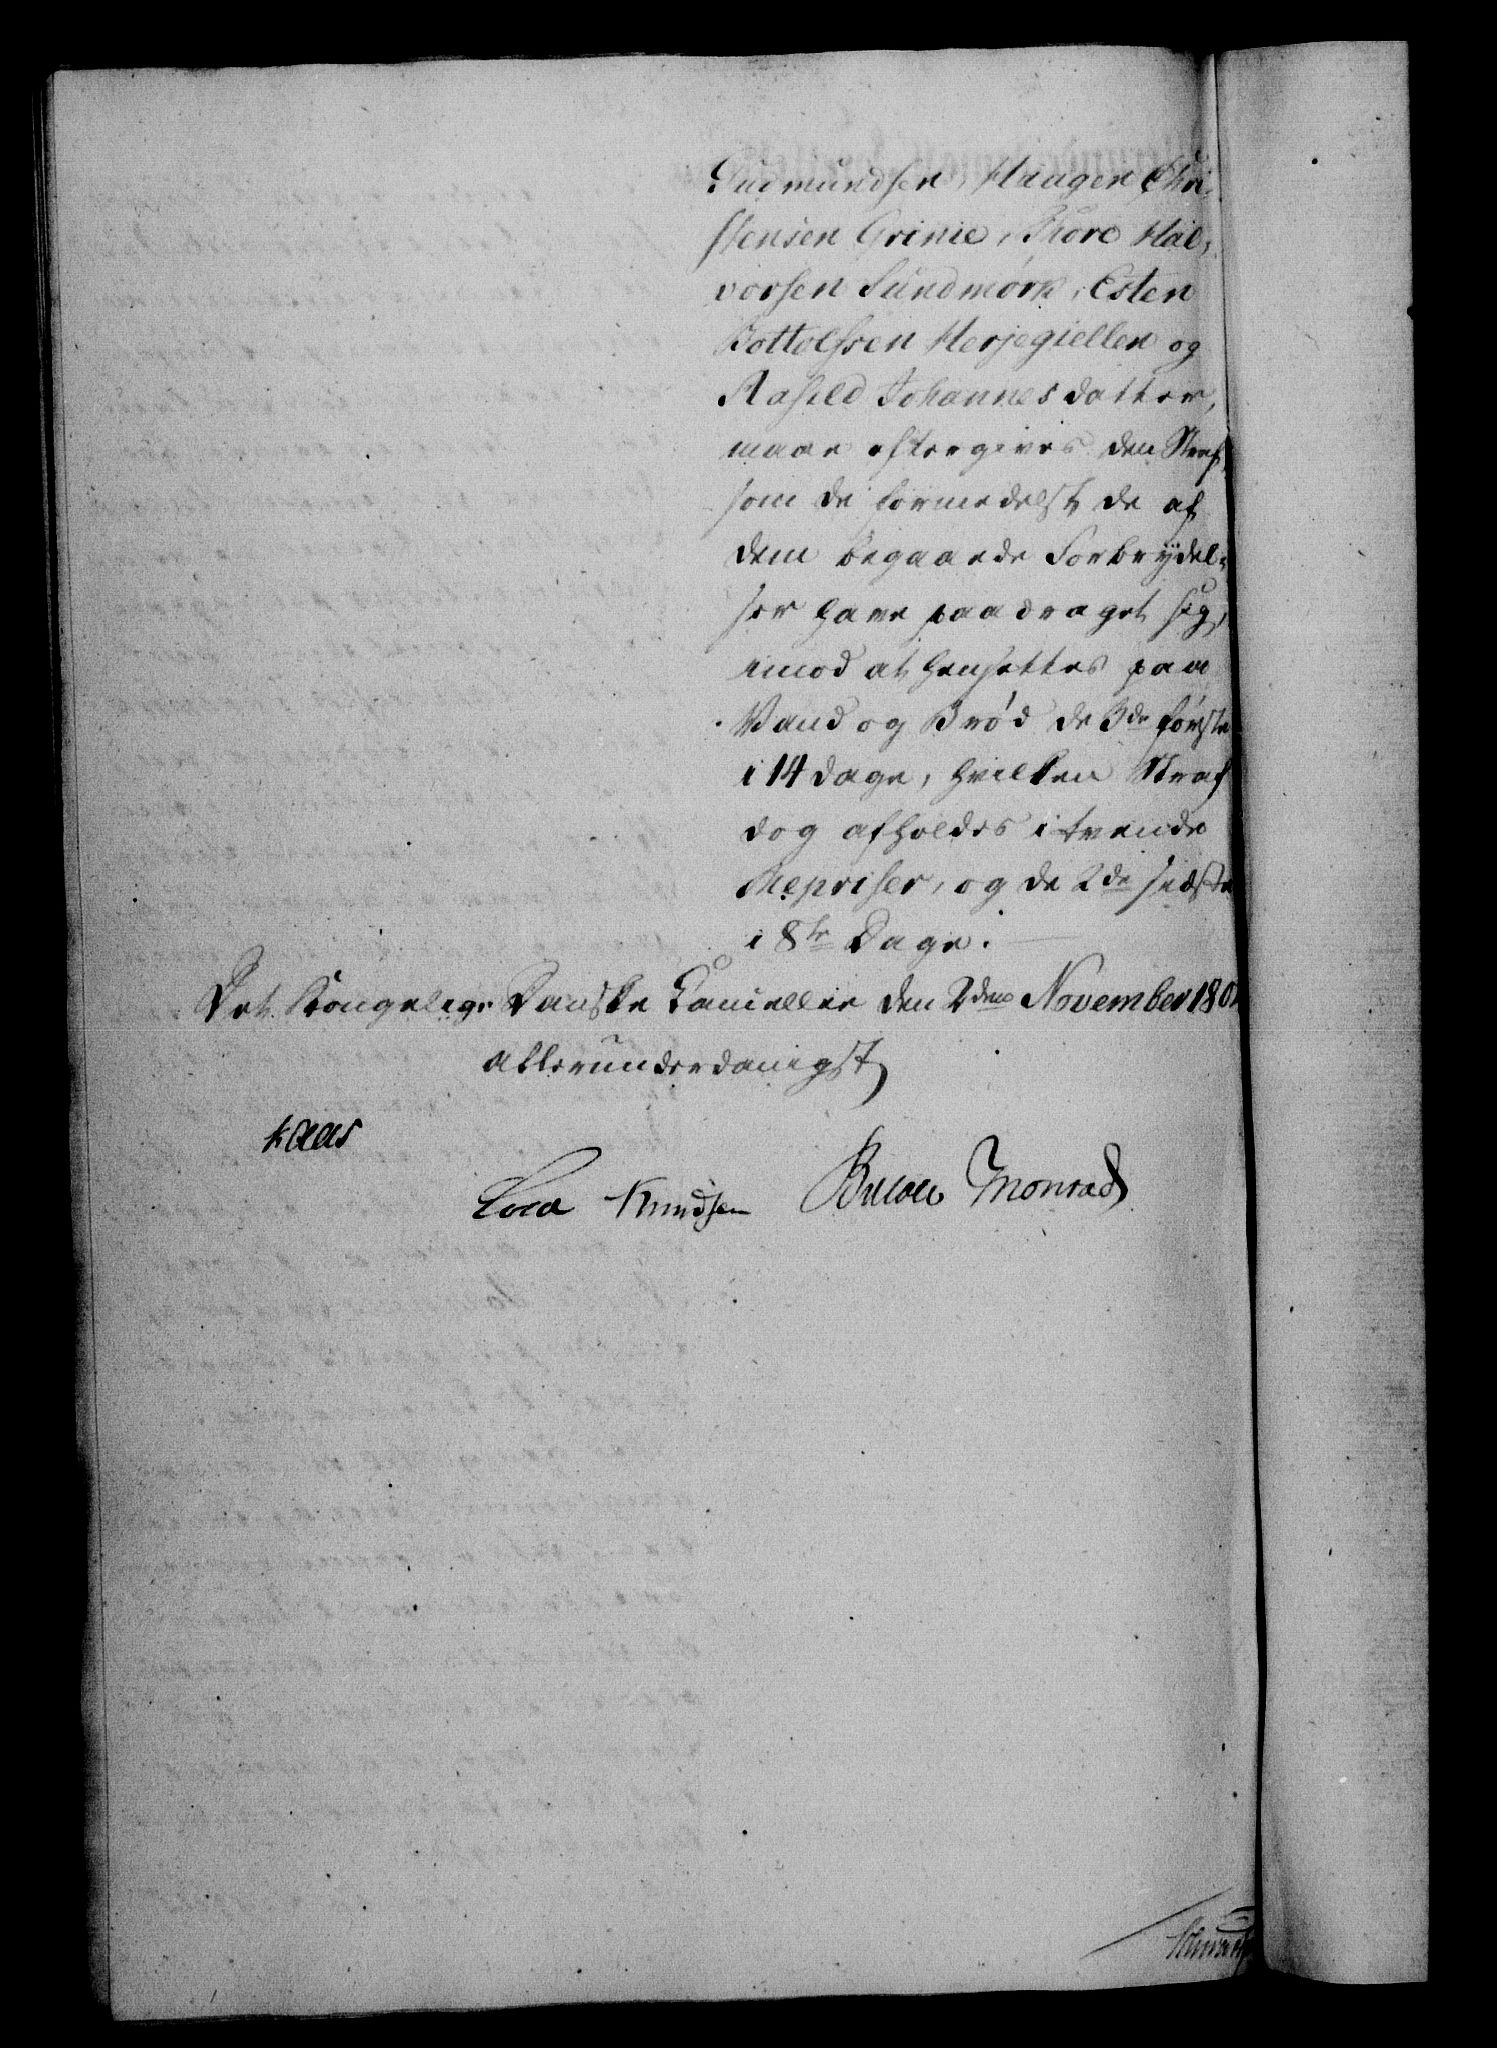 Gudmundsen, Haagen Chri-
stensen Grimie, Thore Hal-
vorsen Sundmørk, Esten
Bottolfsen Herjegiellen og
Aasild Johannesdatter,
maae eftergives den Straf,
som de formedelst de af
dem begaaede Forbrydel-
ser have paadraget sig,
imod at hensettes paa
Vand og Brød de 3de første
i 14 dage, hvilken Straf
dog afholdes i trende
Repriser, og de 2de sidste
i 8te Dage.
Det Kongelige Danske Cancellie den 2den November 180
allerunderdanigst
Kaas
Cold Knudsen Bülow Monrad